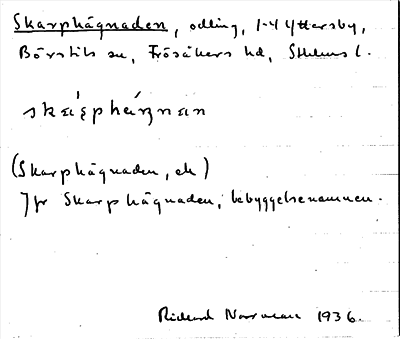 Skarphägnaden, odling, 1-4 Yttersby,
Börstils sn, Frösåkers hd, Sthlms l.
(Skarphägnaden, ek)
Jfr Skarphägnaden, bebyggelsenamnen.
Rickard Norrman 1936.